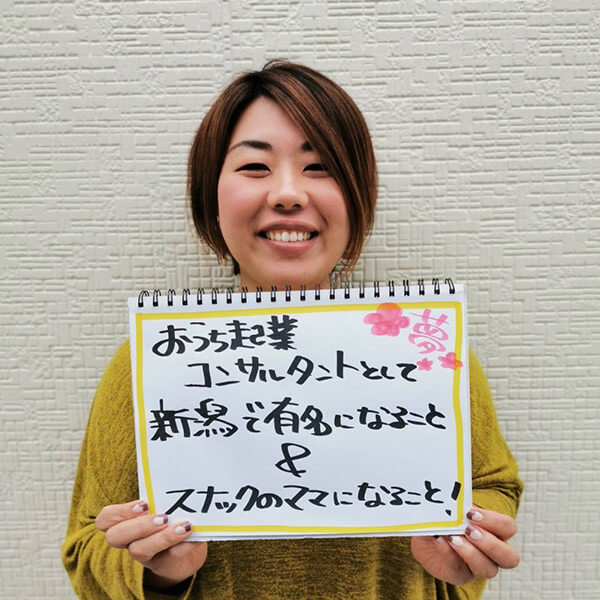 夢
おうち起業
コンサルタントとして
新潟で有名になること
&
スナックのママになること!